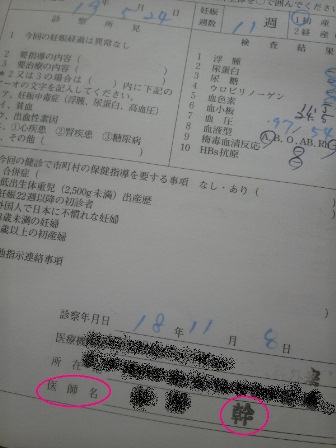 年 月 日
19 5 24
診 察 所 見
1 今回の妊娠経過は異常なし
2 要指導の内容（
3 要治療の内容（
★2又は3の場合は（ ）内に下記の
ア～オの文字を記入してください。
ア、妊娠中毒症（浮腫、尿蛋白、高血圧）
イ、貧血
ウ、出血性素因
エ、①心疾患 ②腎疾患 ③糖尿病
オ、その他（
妊娠
週数 11 週
1 初 産
2 経 産
検 査 結 果
1 浮 腫
2 尿蛋白
3 尿 糖
4 ウロビリノーゲン
5 血色素
6 血小板
7 血 圧 97/54
8 血液型 A, B, O, AB, Rh
9 梅毒血清反応
10 HBs抗原
今回の健診で市町村の保健指導を要する事項 なし・あり（
合併症（
低出生体重児（2,500g未満）出産歴
妊娠22週以降の初診者
外国人で日本に不慣れな妊婦
歳未満の妊婦
歳以上の初産婦
指示連絡事項
診察年月日 18 年 11 月 8 日
医療機
所 在
医 師 名 幹